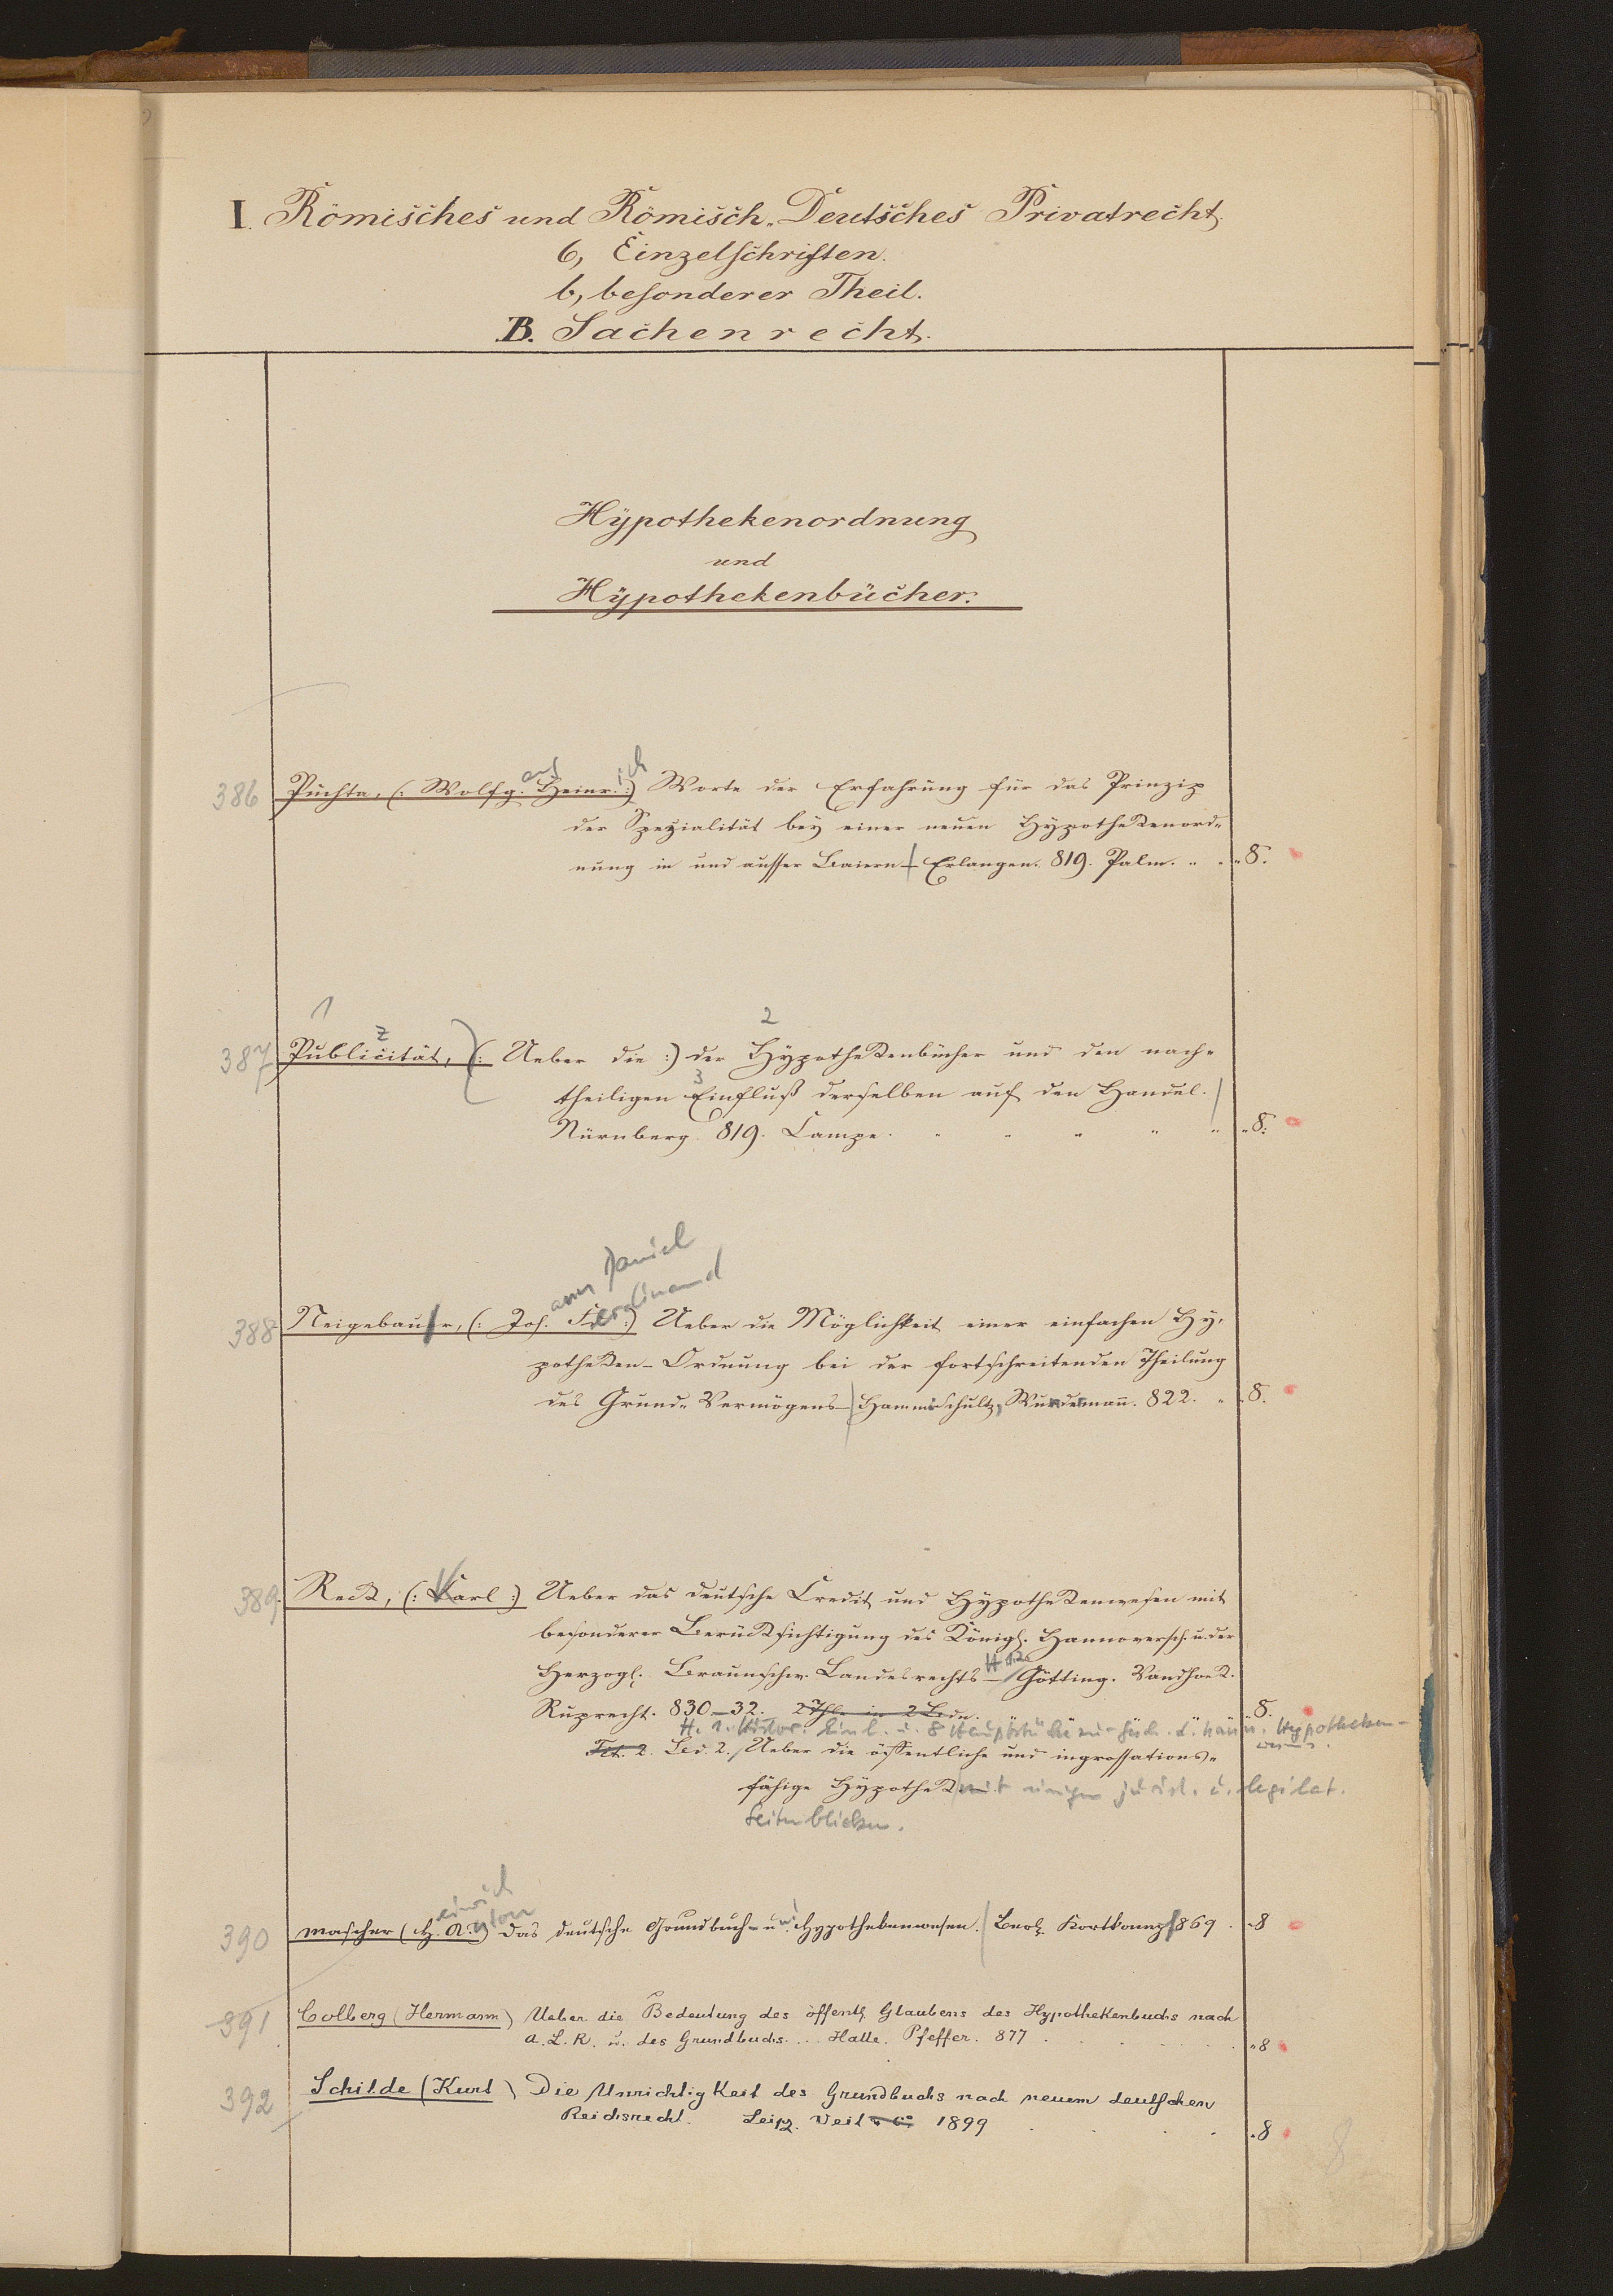 I. Römisches und Römisch-Deutsches Privatrecht.
6, Einzelschriften.
b, besonderer Theil.
B. Sachenrecht.
Hÿpothekenordnung
und
Hÿpothekenbücher.
386 Puchta, (: Wolfg. Heinr. :) Worte der Erfahrung für das Prinzip
der Spezialität beÿ einer neuen Hÿpothekenord-
nung in und ausser Baiern – Erlangen. 819. Palm. 8.
1 2
387 Publicität, (: Ueber die :) der Hÿpothekenbücher und den nach-
3
theiligen Einfluß derselben auf den Handel.
Nürnberg. 819. Campe. 8.
ann Daniel
Ferdinand
388 Neigebaur, (: Joh. :) Ueber die Möglichkeit einer einfachen Hÿ-
potheken-Ordnung bei der fortschreitenden Theilung
des Grund-Vermögens – Hamm Schultz, Wundermañ. 822. 8.
389. Reck, (: Karl :) Ueber das deutsche Credit und Hÿpothekenwesen mit
besonderer Berücksichtigung des Königl. Hannoversch. u. der
Herzogl. Braunschw. Landesrechts – Götting. Vandhoek.
Ruprecht. 830–32. 2 Thle in 2 Bdn. 8.
H. 1. Histor. Einl. u. 8 Hauptstücke Hypotheken-
Tit. 2. Bd. 2. Ueber die öffentliche und ingrossations-
fähige Hÿpothek mit einigen jurist. u. legislat.
Seitenblicken.
einrich ston
390 Mascher (H. A.) Das deutsche Grundbuch- u. Hypothekenwesen. Berl. Kortkampf 869. 8
391 Colberg (Hermann) Ueber die Bedeutung des öffentl. Glaubens des Hypothekenbuchs nach
A. L. R. u. des Grundbuchs ... Halle. Pfeffer. 877 8
392 Schilde (Kurt) Die Unrichtigkeit des Grundbuchs nach neuem deutschen
Reichsrecht. Leipz. Veit & Co 1899 8
8